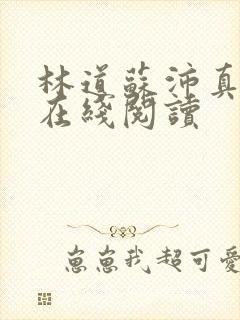 林道蘇沛真
在綫閱讀
崽崽我超可愛